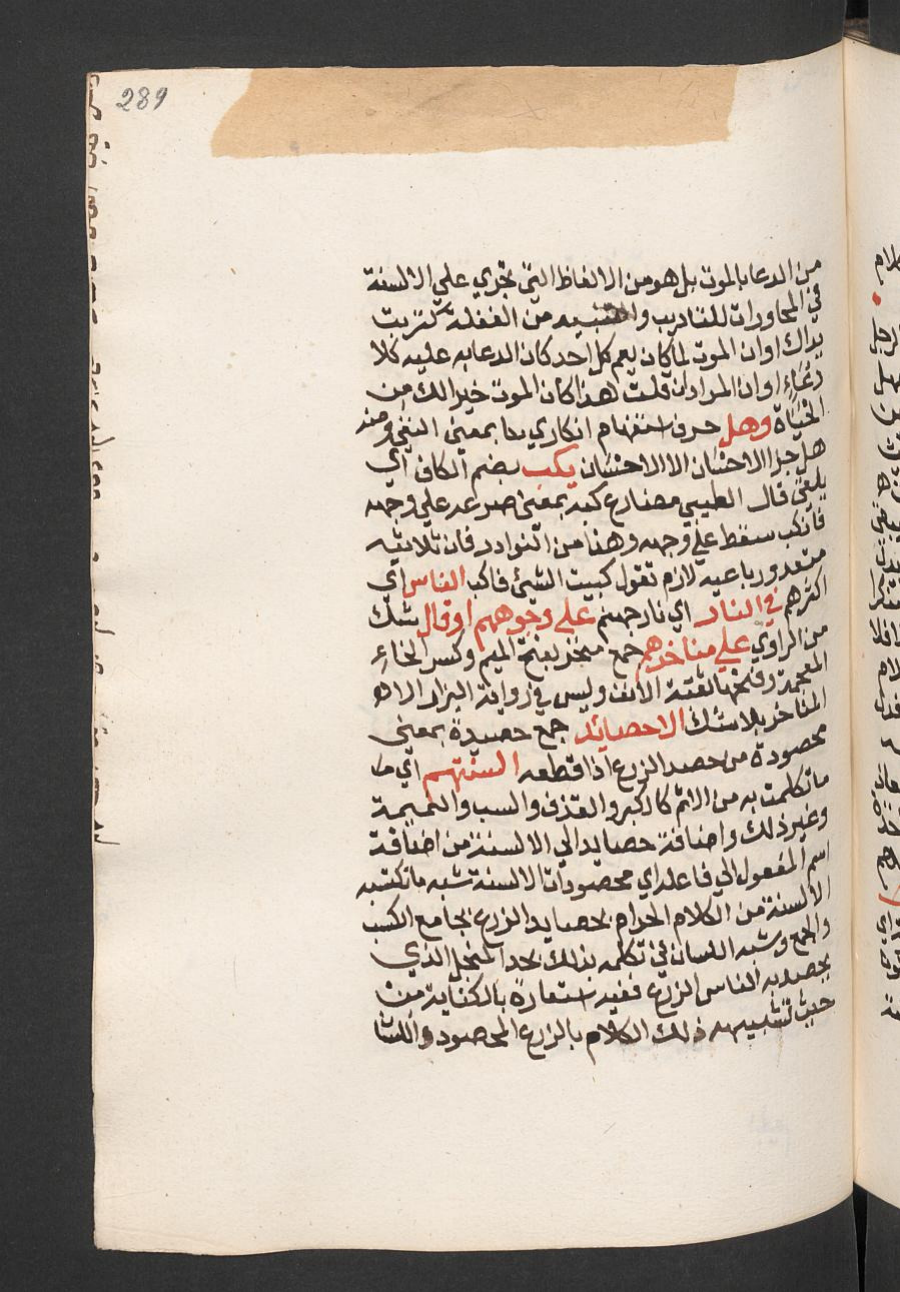 289
من الدعا بالموت بل هو من الالفاظ التي تجري علي الالسنة
في المحاورات للتاديب والتنبيه من الغفلة كتربت
يداك او ان الموت لما كان يعم كل احد كان الدعا به عليه كلا
دعاء او ان المراد ان قلت هذا كان الموت خيرا لك من
الحياة وهل حرف استفهام انكاري بمعني النفي ومنه
هل جزا الاحسان الا الاحسان يكب بضم الكاف اي
يلقي قال الطيبي مضارع كبه بمعني صرعه علي وجهه
فانكب سقط علي وجهه وهذا من النوادر فان ثلاثيه
متعد ورباعيه لازم تقول كببت الشيء فاكب الناس اي
اكثرهم في النار اي نار جهنم علي وجوههم او قال شك
من الراوي علي مناخرهم جمع منخر بفتح الميم وكسر الخاء
المعجمة وفتحها ثقبة الانف وليس في رواية البزار الا
المناخر بلا شك الا حصائد جمع حصيدة بمعني
محصودة من حصد الزرع اذا قطعه السنتهم اي ما
ما تكلمت به من الاثم كالكبر والقذف والسب والنميمة
وغير ذلك واضافة حصايد الي الالسنة من اضافة
اسم المفعول الي فاعله اي محصودات الالسنة شبه ما تكتسبه
الالسنة من الكلام الحرام بحصايد الزرع بجامع الكسب
والجمع وشبه اللسان في تكلمه بذلك بحد المنجل الذي
يحصد به الناس الزرع ففيه استعارة بالكناية من
حيث تشبيهه ذلك الكلام بالزرع المحصود واللسا